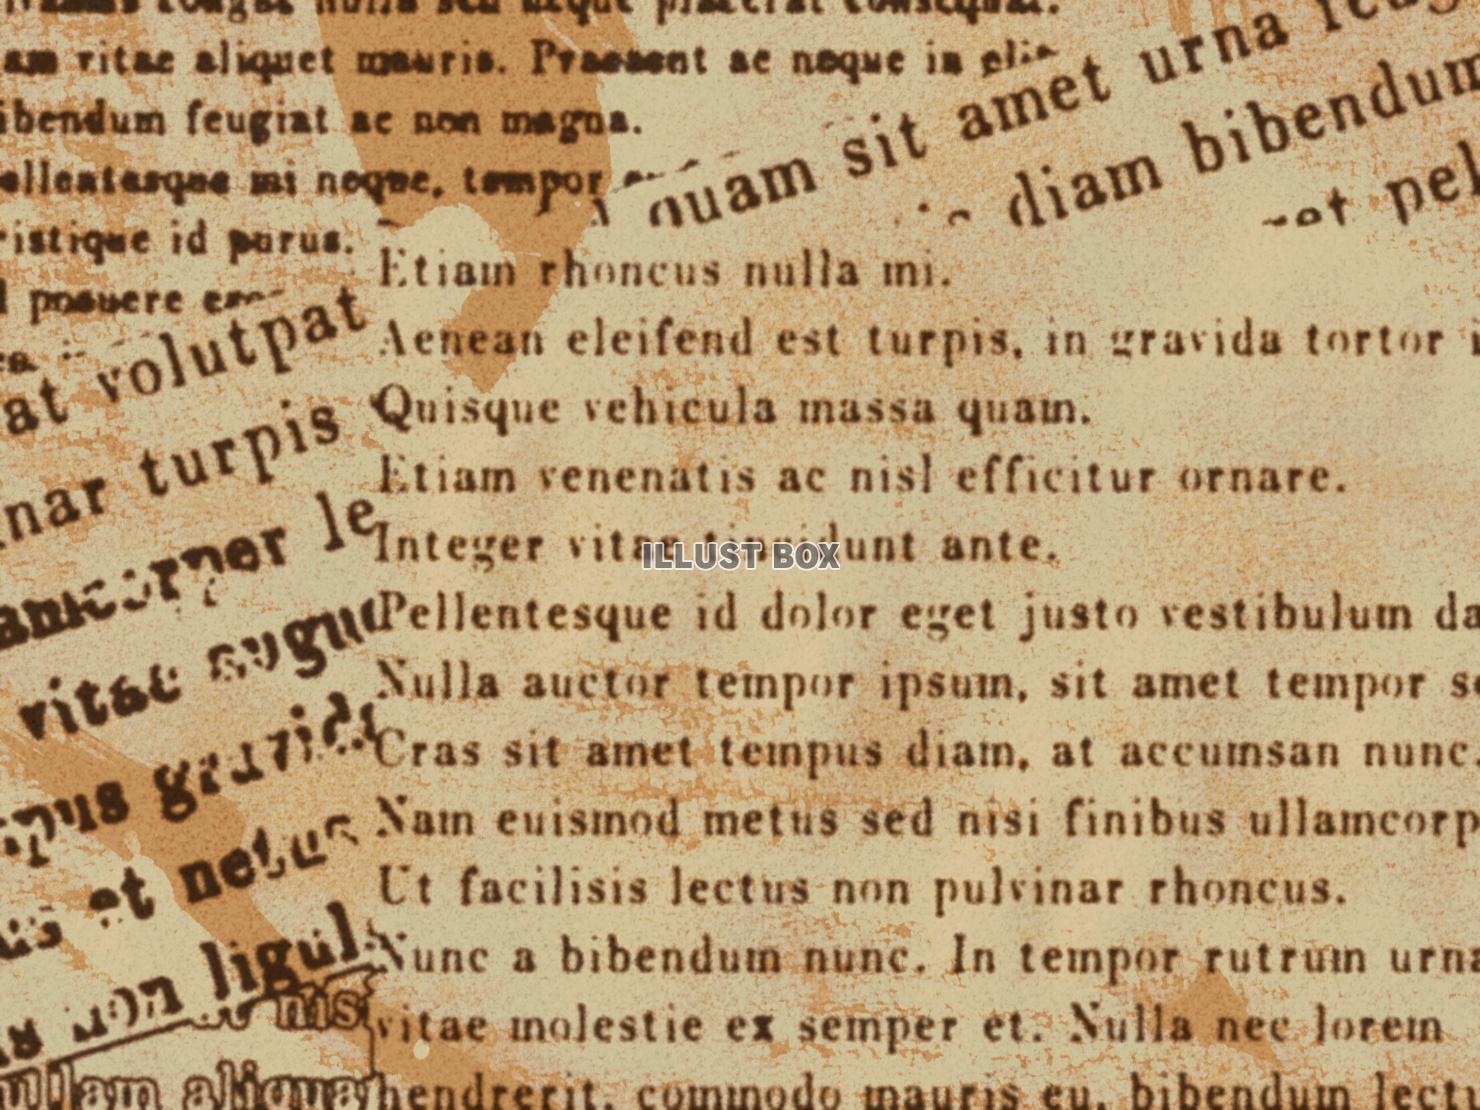 vitae aliquet mauris. Praesent ac neque in
bibendum feugiat ac non magna.
Pellentesque mi neque, tempor
tristique id purus.
posuere
quam sit amet urna
diam bibendum
volutpat
turpis
vitae augue
gravida
et netus
non ligula
nisi
Etiam rhoncus nulla mi.
Aenean eleifend est turpis, in gravida tortor
Quisque vehicula massa quam.
Etiam venenatis ac nisl efficitur ornare.
Integer vitae tincidunt ante.
ILLUST BOX
Pellentesque id dolor eget justo vestibulum da
Nulla auctor tempor ipsum, sit amet tempor se
Cras sit amet tempus diam, at accumsan nunc.
Nam euismod metus sed nisi finibus ullamcorp
Ut facilisis lectus non pulvinar rhoncus.
Nunc a bibendum nunc. In tempor rutrum urna
vitae molestie ex semper et. Nulla nec lorem
hendrerit, commodo mauris eu, bibendum lectu